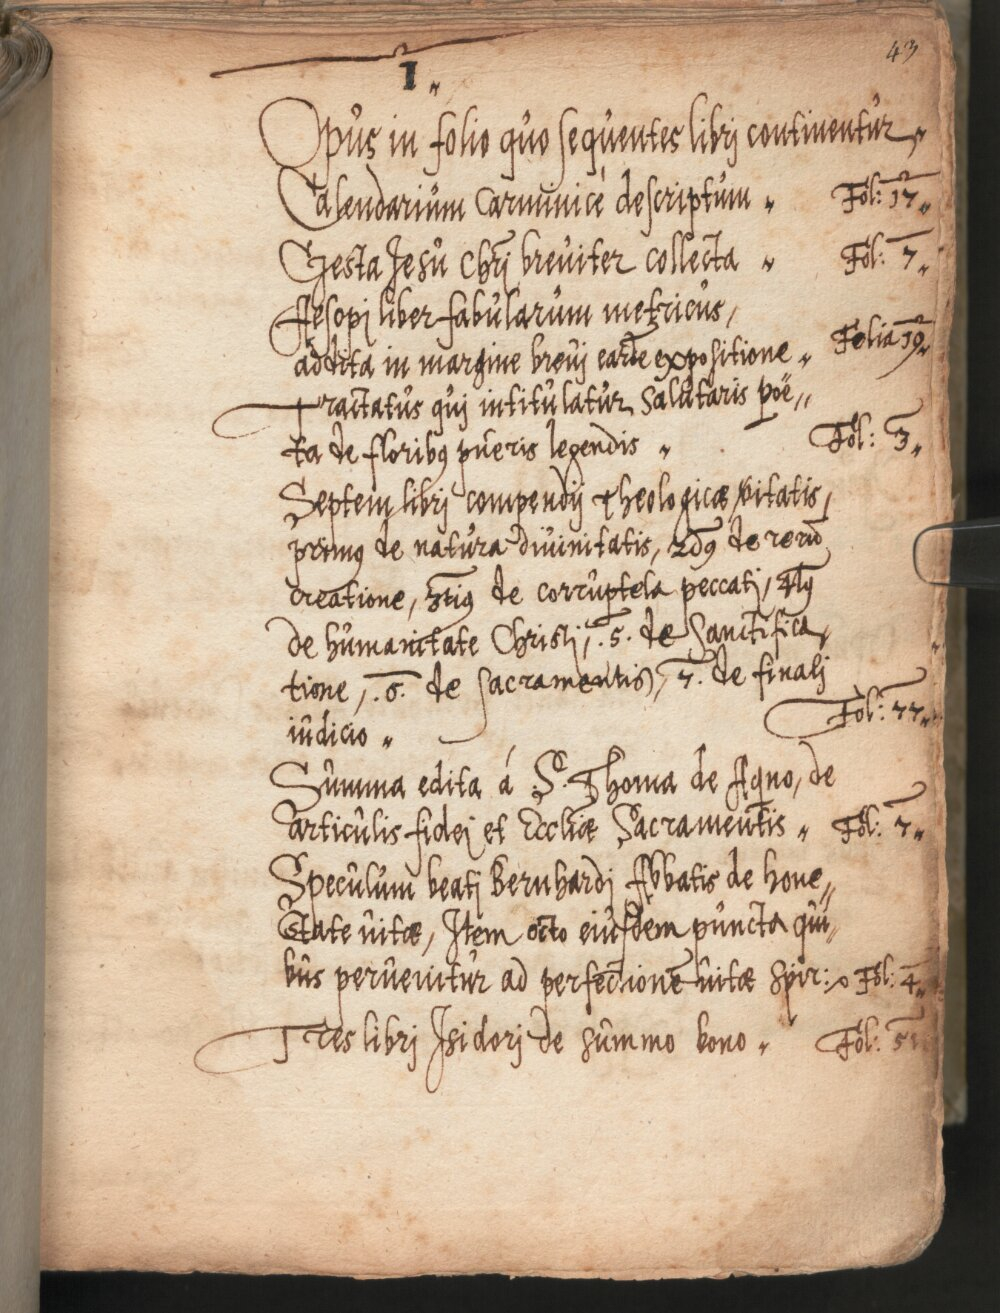 43
I
Opus in folio quo sequentes librj continentur
Calendarium carminicè descriptum Fol: 17
Gesta Jesu Chrj breuiter collecta Fol: 7
Aesopj liber fabularum metricus,
addita in margine breuj earū expositione Folia 19.
Tractatus quj intitulatur Salutaris poë„
ta de floribq pueris legendis Fol: 3
Septem librj compendij theologicæ vitatis,
primq de natura diuinitatis, 2dq de rerū
creatione, 3tiq de corruptela peccatj, 4tq
de humanitate Christj, .5. de Sanctifica„
tione, .6. de sacramentis, 7. de finalj
iudicio Fol: 77
Summa edita á S. Thoma de Aqno, de
articulis fidej et Eccliæ Sacramentis Fol: 7
Speculum beatj Bernhardj Abbatis de hone„
state uitæ, Item octo eiusdem puncta qui„
bus peruenitur ad perfectionē uitæ Spir: Fol: 4
Tres librj Isidorj de summo bono Fol: 51